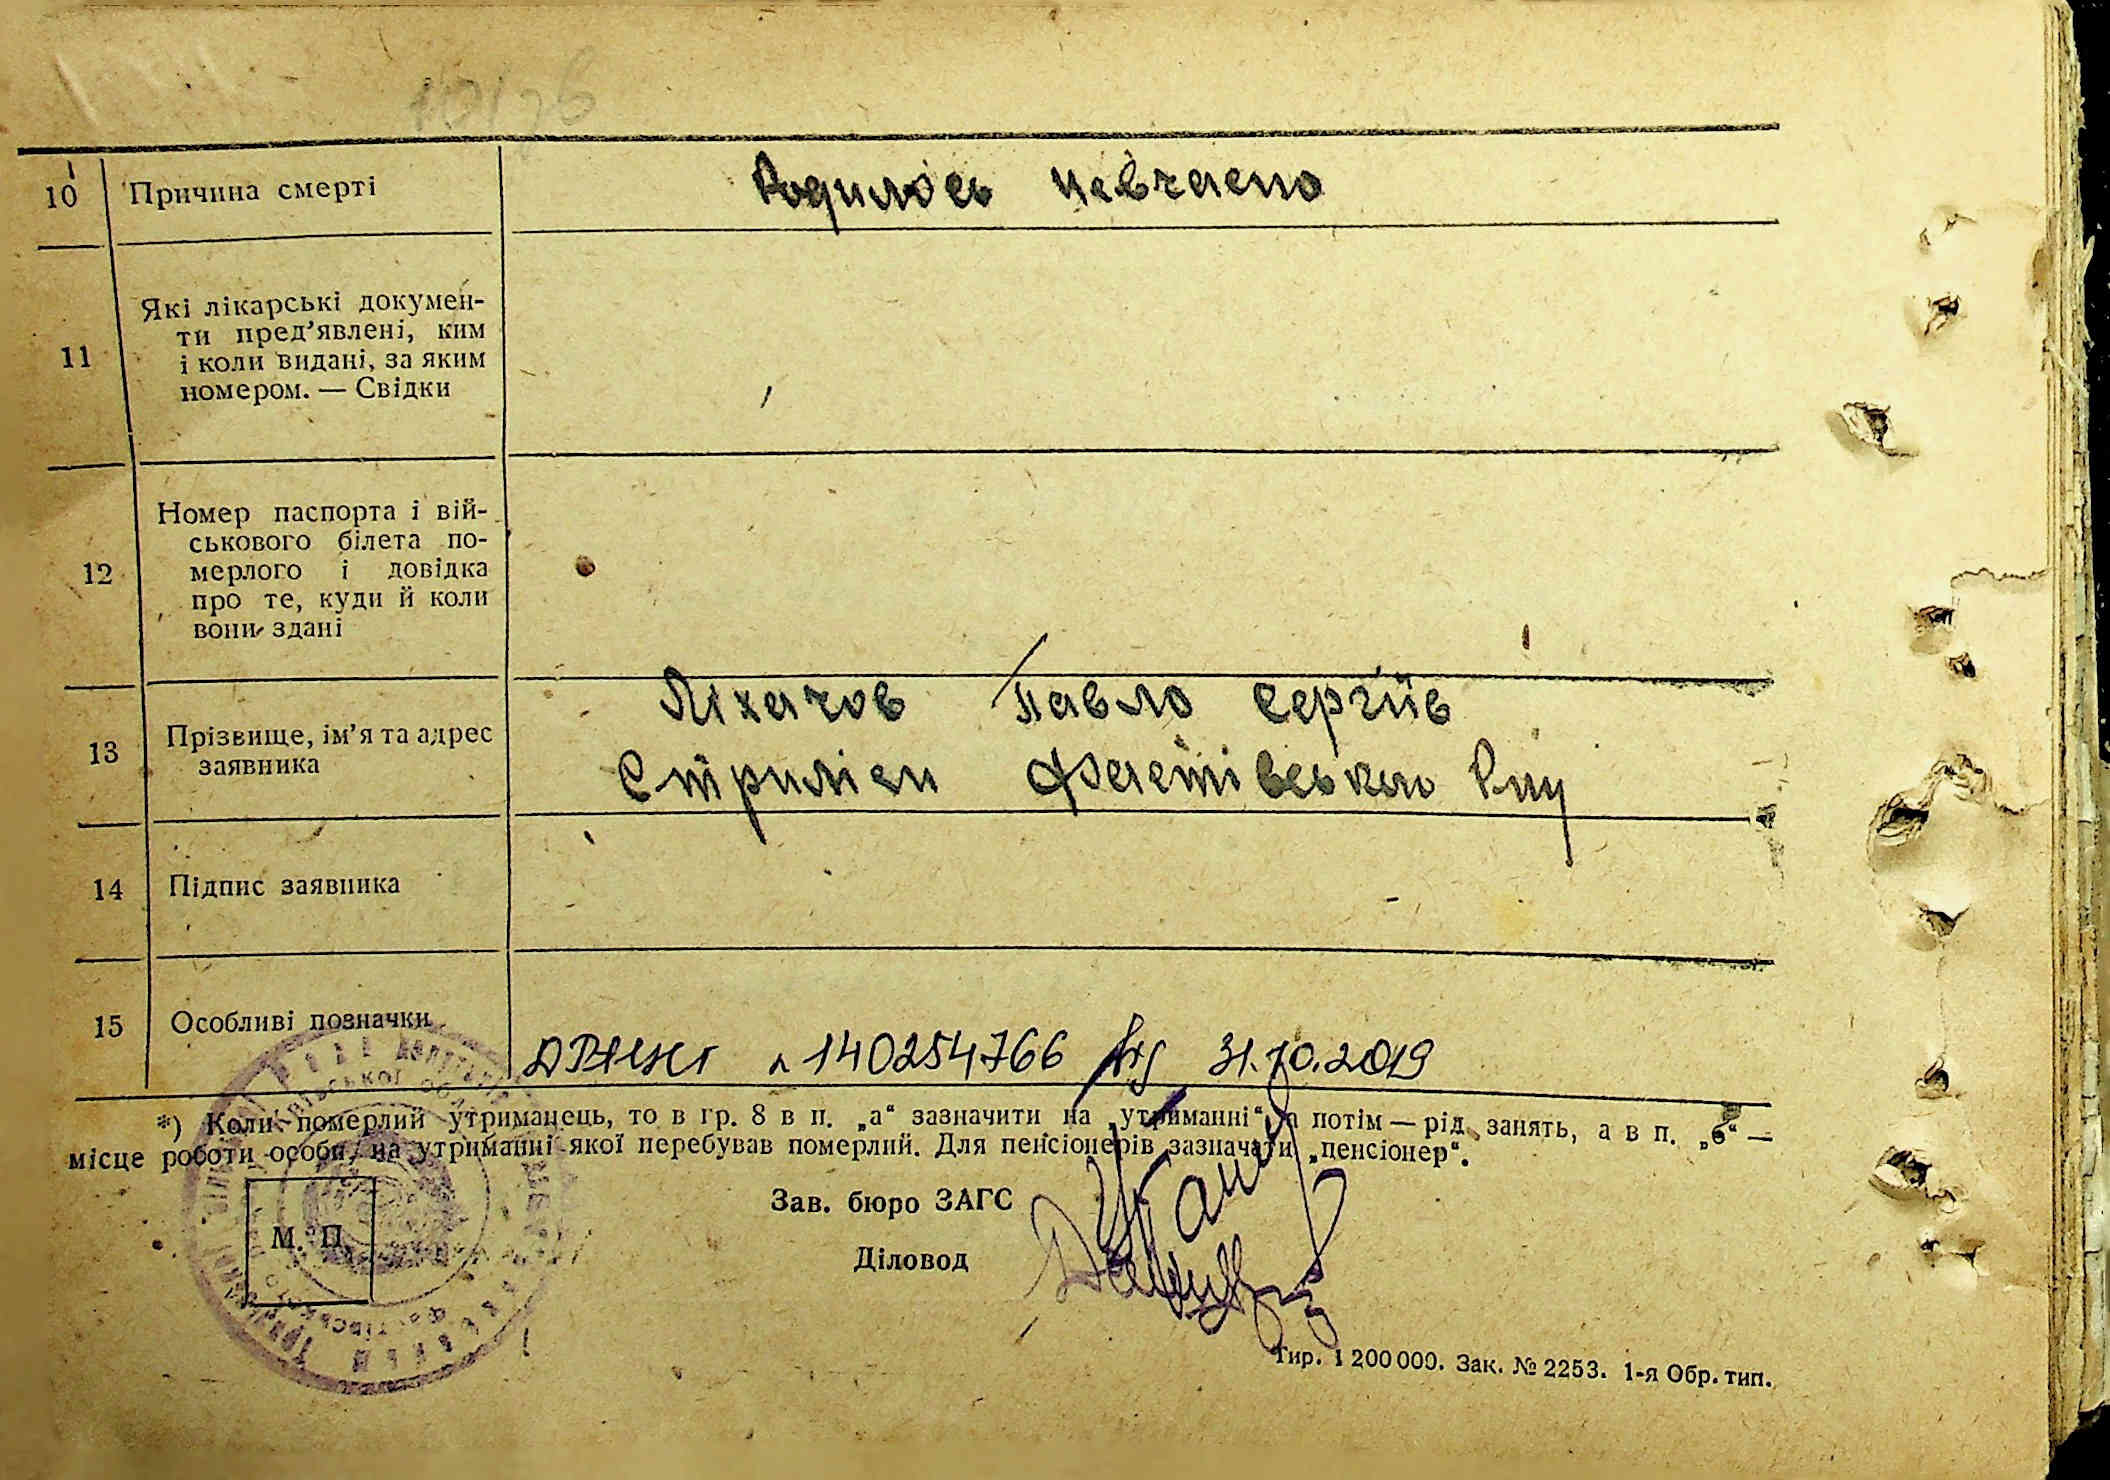 10 Причина смерті Родилось невчасно
11 Які лікарські докумен-
ти пред'явлені, ким
і коли видані, за яким
номером. — Свідки
12 Номер паспорта і вій-
ськового білета по-
мерлого і довідка
про те, куди й коли
вони здані
13 Прізвище, ім'я та адрес
заявника
Ліхачов Павло Сергіїв
Фастівського Р-ну
14 Підпис заявника
15 Особливі позначки
140254766 від 31.10.2019
*) Коли померлий утриманець, то в гр. 8 в п. „а“ зазначити на „утриманні“, а потім — рід занять, а в п. „б“ —
місце роботи особи, на утриманні якої перебував померлий. Для пенсіонерів зазначати „пенсіонер“.
Зав. бюро ЗАГС
М. П.
Діловод
Тир. 1 200 000. Зак. № 2253. 1-я Обр. тип.